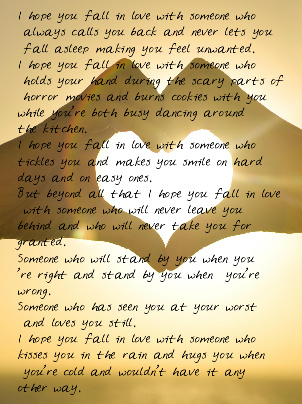 I hope you fall in love with someone who
always calls you back and never lets you
fall asleep making you feel unwanted.
I hope you fall in love with someone who
holds your hand during the scary parts of
horror movies and burns cookies with you
while you're both busy dancing around
the kitchen.
I hope you fall in love with someone who
tickles you and makes you smile on hard
days and on easy ones.
But beyond all that I hope you fall in love
with someone who will never leave you
behind and who will never take you for
granted.
Someone who will stand by you when you
're right and stand by you when you're
wrong.
Someone who has seen you at your worst
and loves you still.
I hope you fall in love with someone who
kisses you in the rain and hugs you when
you're cold and wouldn't have it any
other way.